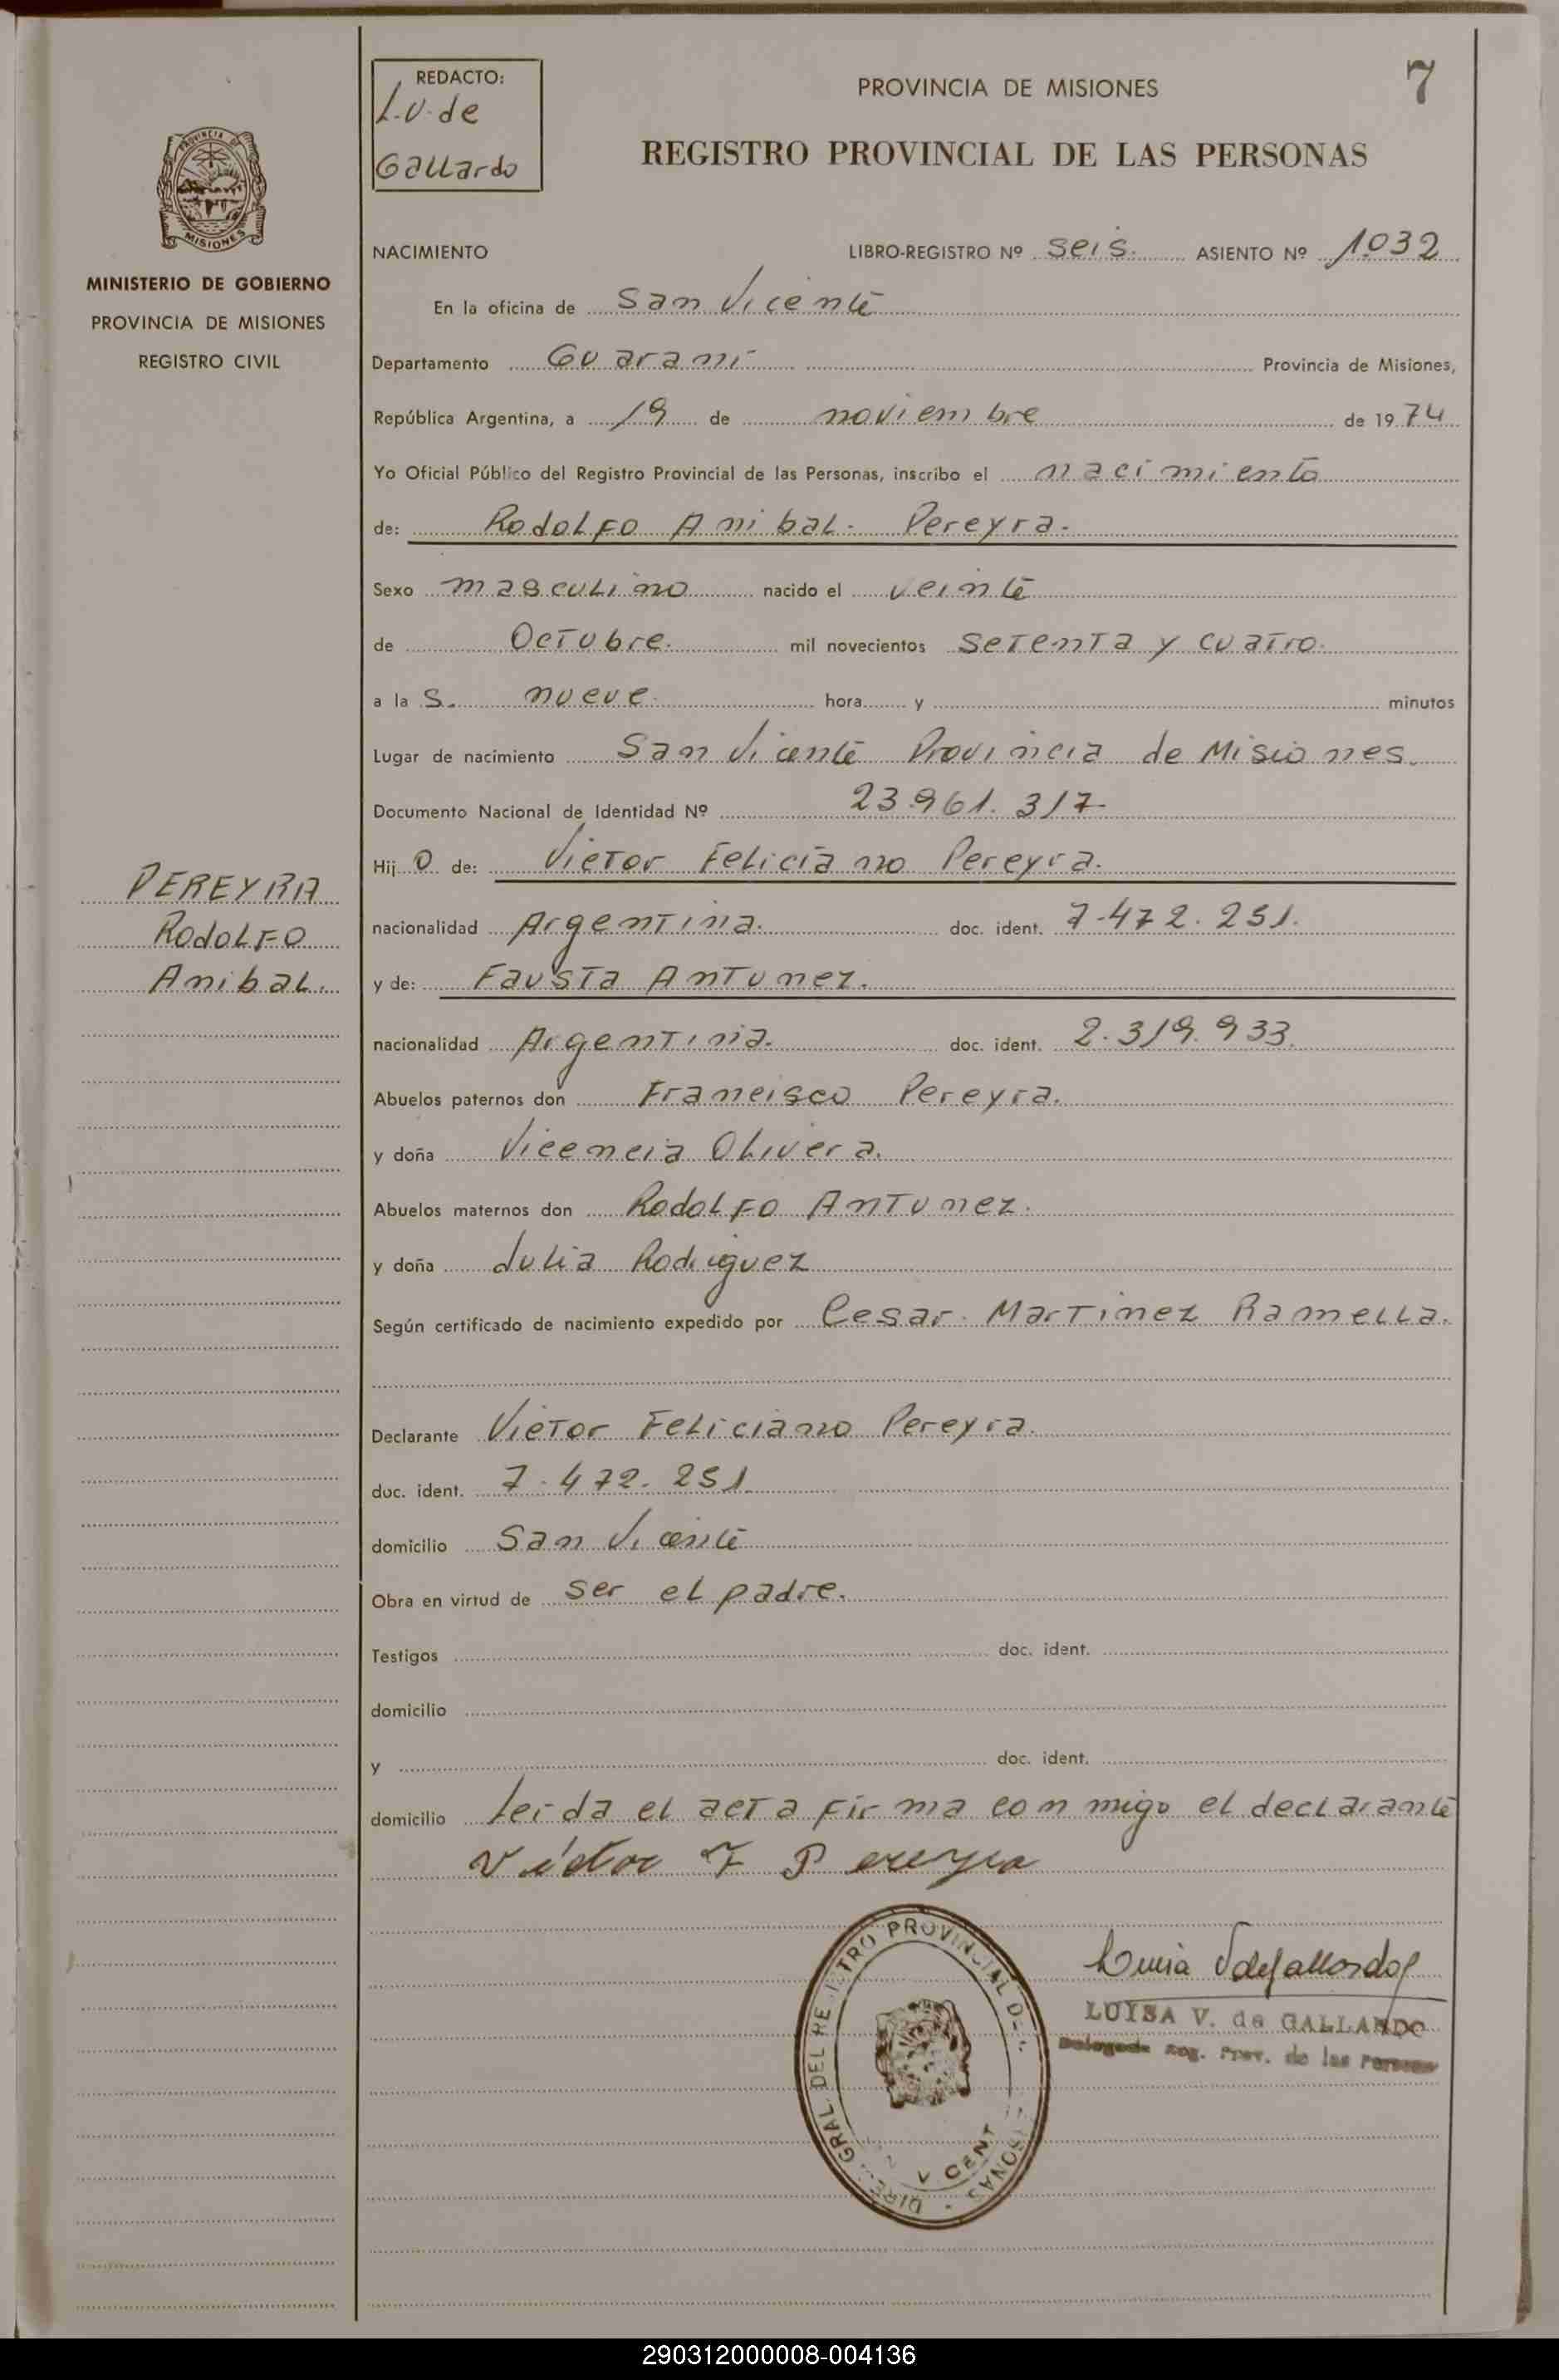 REDACTO:
L.V. de
Gallardo
7
PROVINCIA DE MISIONES
REGISTRO PROVINCIAL DE LAS PERSONAS
PROVINCIA DE
MISIONES
MINISTERIO DE GOBIERNO
PROVINCIA DE MISIONES
REGISTRO CIVIL
NACIMIENTO LIBRO-REGISTRO Nº seis. ASIENTO Nº 1.032
En la oficina de San Vicente
Departamento Guaraní Provincia de Misiones,
República Argentina, a 19 de noviembre de 1974
Yo Oficial Público del Registro Provincial de las Personas, inscribo el nacimiento
de: Rodolfo Anibal. Pereyra.
Sexo masculino nacido el veinte
de Octubre. mil novecientos setenta y cuatro.
a la s. nueve. hora y minutos
Lugar de nacimiento San Vicente Provincia de Misiones.
Documento Nacional de Identidad Nº 23.961.317.
Hijo de: Victor Feliciano Pereyra.
PEREYRA
Rodolfo
Anibal.
nacionalidad Argentina. doc. ident. 7.472.251.
y de: Fausta Antunez.
nacionalidad Argentina. doc. ident. 2.319.933.
Abuelos paternos don Francisco Pereyra.
y doña Vicencia Olivera.
Abuelos maternos don Rodolfo Antunez.
y doña Julia Rodriguez
Según certificado de nacimiento expedido por Cesar. Martinez Ramella.
Declarante Victor Feliciano Pereyra.
doc. ident. 7.472.251.
domicilio San Vicente
Obra en virtud de ser el padre.
Testigos doc. ident.
domicilio
y doc. ident.
domicilio Leida el acta firma conmigo el declarante
Victor F Pereyra
LUISA V. de GALLARDO
Delegada Reg. Prov. de las Personas
290312000008-004136